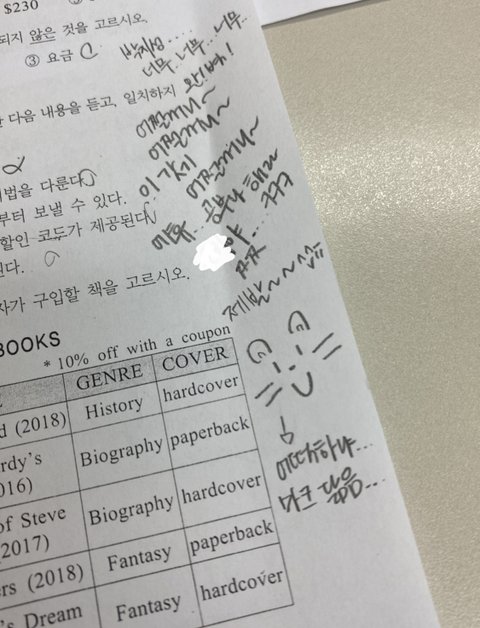 $230
되지 않은 것을 고르시오.
③ 요금
박지성....
너무..너무...너무..
완벽!
다음 내용을 듣고, 일치하지
어쩜이니~
어쩜이니~
어쩜이니~
이 가씨
법을 다룬다
부터 보낼 수 있다.
공부나 해라
할인 코드가 제공된다
ㅋㅋㅋ
된다.
ㅠㅠ
자가 구입할 책을 고르시오.
제발~~
BOOKS
* 10% off with a coupon
GENRE COVER
d (2018) History hardcover
rdy's
016) Biography paperback
of Steve
(2017) Biography hardcover
rs (2018) Fantasy paperback
's Dream Fantasy hardcover
어떠하냐...